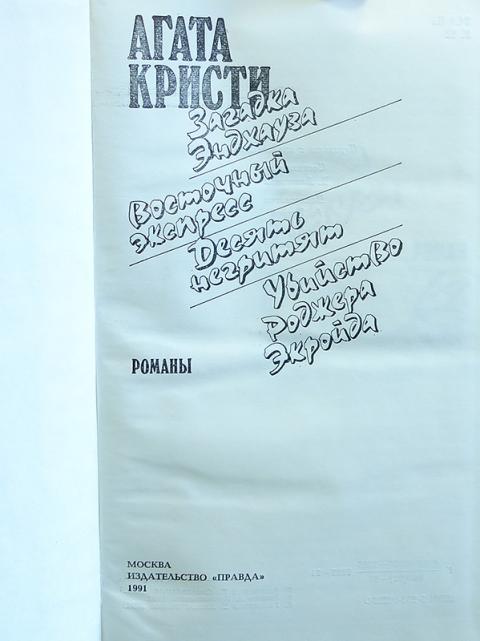 АГАТА
КРИСТИ
Загадка
Эндхауза
Восточный
экспресс
Десять
негритят
Убийство
Роджера
Экройда
РОМАНЫ
МОСКВА
ИЗДАТЕЛЬСТВО «ПРАВДА»
1991